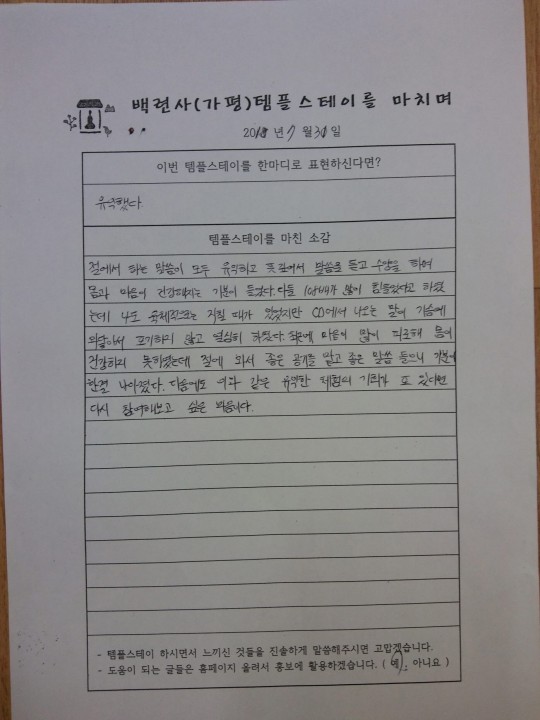 백련사(가평)템플스테이를 마치며
2013년 7월 31일
이번 템플스테이를 한마디로 표현하신다면?
유익했다
템플스테이를 마친 소감
절에서 하는 말씀이 모두 유익하고 뜻깊어서 말씀을 듣고 수양을 하여
몸과 마음이 건강해지는 기분이 들었다. 다들 108배가 많이 힘들었다고 하셨
는데 나도 육체적으로는 저릴 때가 있었지만 CD에서 나오는 말이 가슴에
와닿아서 포기하지 않고 열심히 하였다. 마음이 많이 피로해 몸이
건강하지 못하였는데 절에 와서 좋은 공기를 맡고 좋은 말씀 들으니 기분이
한결 나아졌다. 다음에도 이와 같은 유익한 체험의 기회가 또 있다면
다시 참여해보고 싶은 마음이다.
- 템플스테이 하시면서 느끼신 것들을 진솔하게 말씀해주시면 고맙겠습니다.
- 도움이 되는 글들은 홈페이지 올려서 홍보에 활용하겠습니다. ( 예, 아니요 )